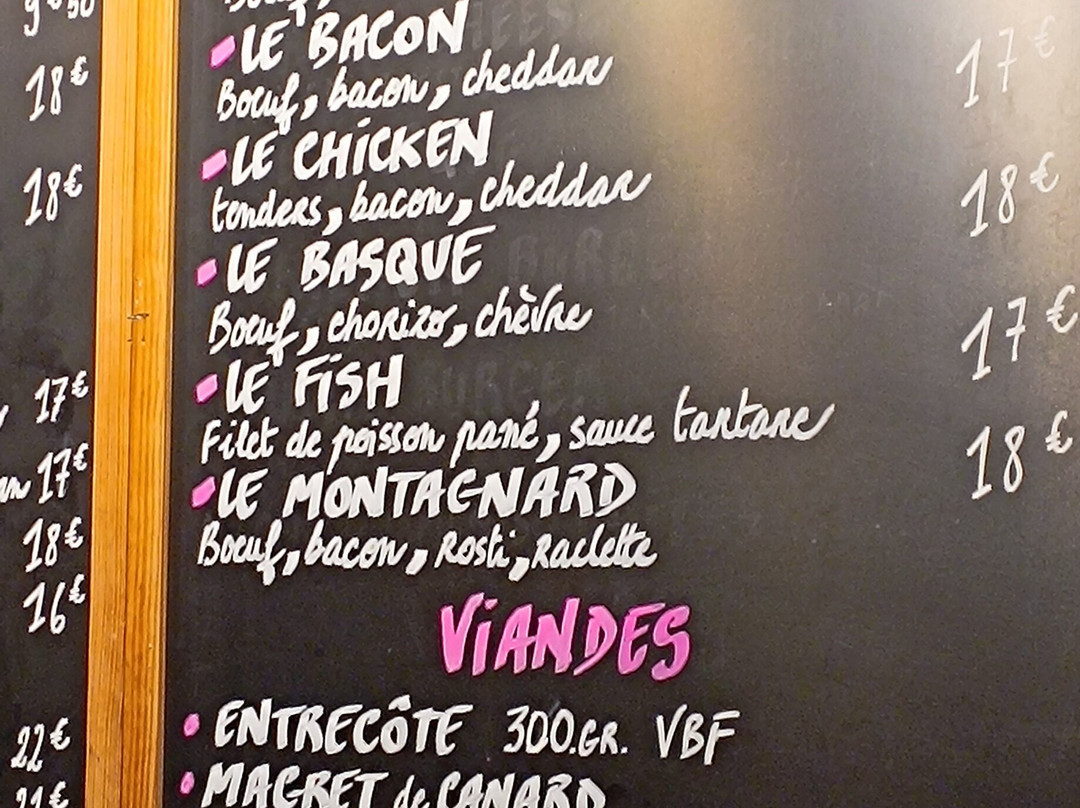 9€50
18€
18€
17€
17€
18€
16€
22€
LE BACON
Boeuf, bacon, cheddar
LE CHiCKEN 17€
tenders, bacon, cheddar
LE BASQUE 18€
Boeuf, chorizo, chèvre
LE FiSH 17€
Filet de poisson pané, sauce tartare
LE MONTAGNARD 18€
Boeuf, bacon, Rosti, Raclette
ViANDES
ENTRECÔTE 300.GR. VBF
MAGRET de CANARD